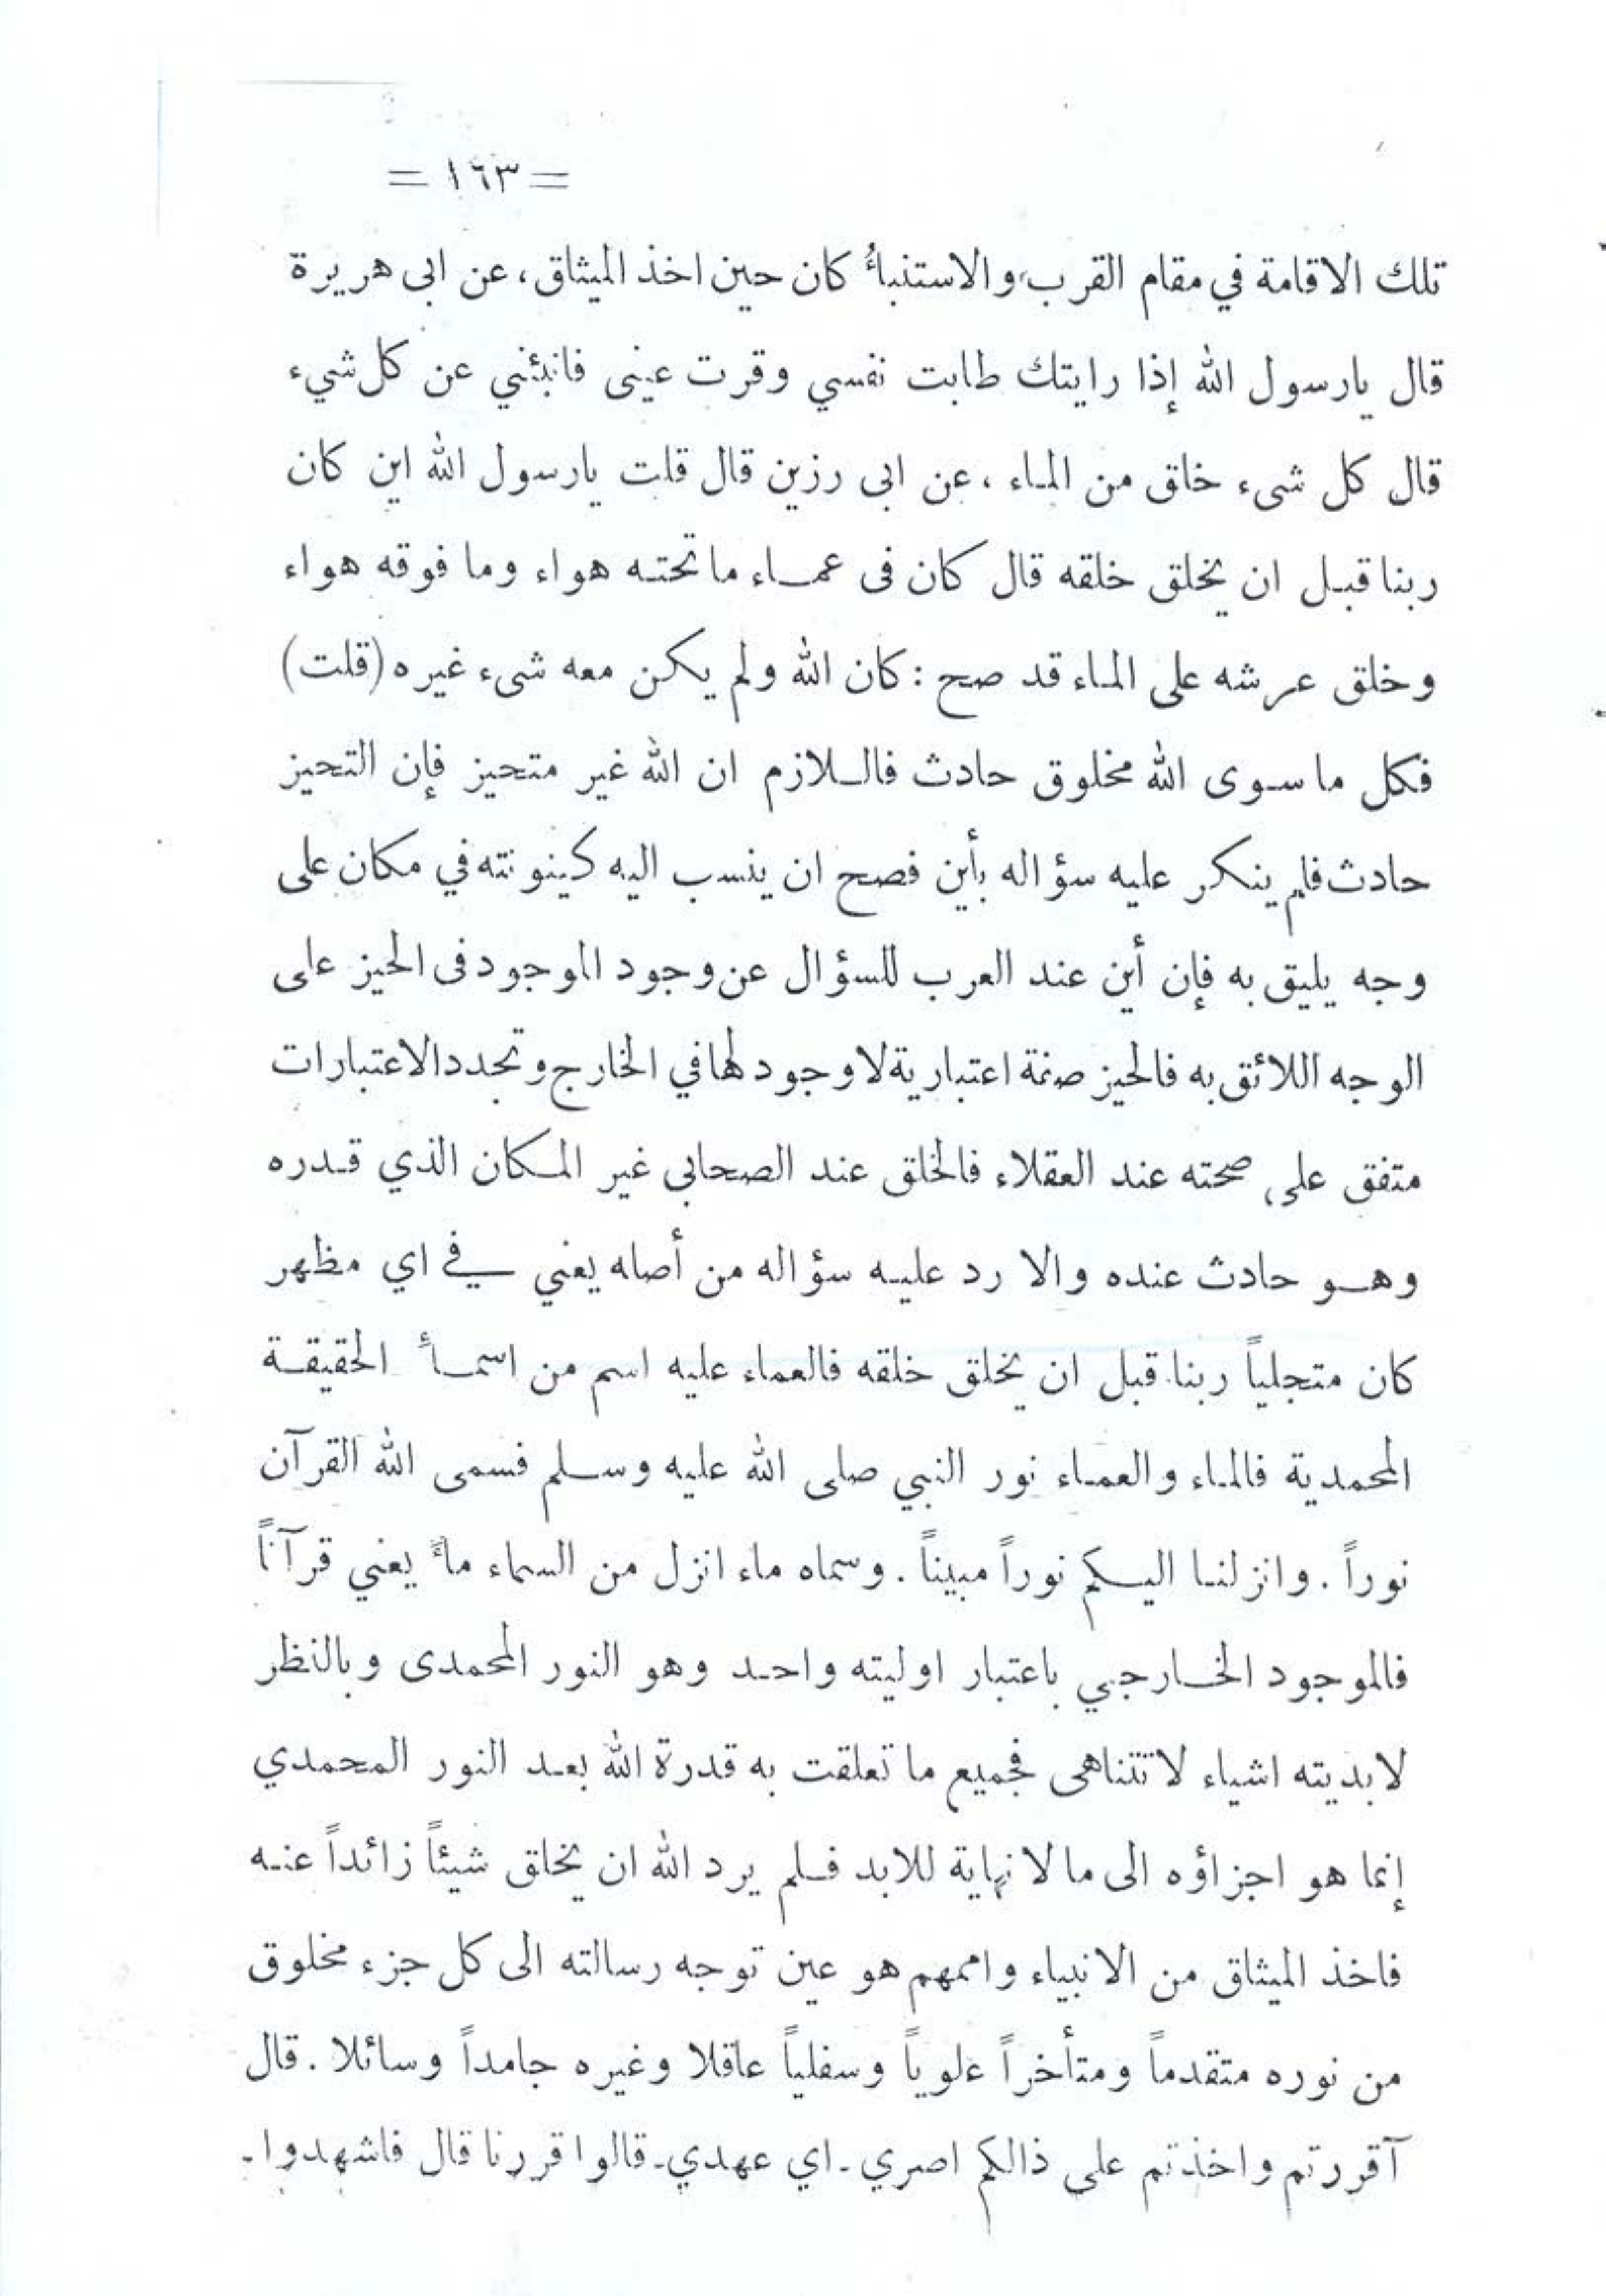 = ١٦٣ =
تلك الاقامة في مقام القرب، والاستنبأُ كان حين اخذ الميثاق، عن ابى هريرة
قال يارسول الله إذا رايتك طابت نفسي وقرت عينى فانبئني عن كل شيء
قال كل شىء خلق من الماء ، عن ابى رزين قال قلت يارسول الله اين كان
ربنا قبل ان يخلق خلقه قال كان فى عماء ما تحته هواء وما فوقه هواء
وخلق عرشه على الماء قد صح : كان الله ولم يكن معه شىء غيره (قلت)
فكل ما سوى الله مخلوق حادث فاللازم ان الله غير متحيز فإن التحيز
حادث فلم ينكر عليه سؤاله بأين فصح ان ينسب اليه كينونته في مكان على
وجه يليق به فإن أين عند العرب للسؤال عن وجود الموجود فى الحيز على
الوجه اللائق به فالحيز صفة اعتبارية لا وجود لها في الخارج وتجدد الاعتبارات
متفق على صحته عند العقلاء فالخلق عند الصحابى غير المكان الذي قدره
وهو حادث عنده والا رد عليه سؤاله من أصله يعني في اي مظهر
كان متجلياً ربنا قبل ان يخلق خلقه فالعماء عليه اسم من اسمأ الحقيقة
المحمدية فالماء والعماء نور النبي صلى الله عليه وسلم فسمى الله القرآن
نوراً . وانزلنا اليكم نوراً مبيناً . وسماه ماء انزل من السماء مأً يعني قرآناً
فالموجود الخارجي باعتبار اوليته واحد وهو النور المحمدى وبالنظر
لابديته اشياء لا تتناهى فجميع ما تعلقت به قدرة الله بعد النور المحمدي
إنما هو اجزاؤه الى ما لا نهاية للابد فلم يرد الله ان يخلق شيئاً زائداً عنه
فاخذ الميثاق من الانبياء واممهم هو عين توجه رسالته الى كل جزء مخلوق
من نوره متقدماً ومتأخراً علوياً وسفلياً عاقلا وغيره جامداً وسائلا . قال
آقررتم واخذتم على ذالكم اصري ـ اي عهدي ـ قالوا قررنا قال فاشهدوا ـ